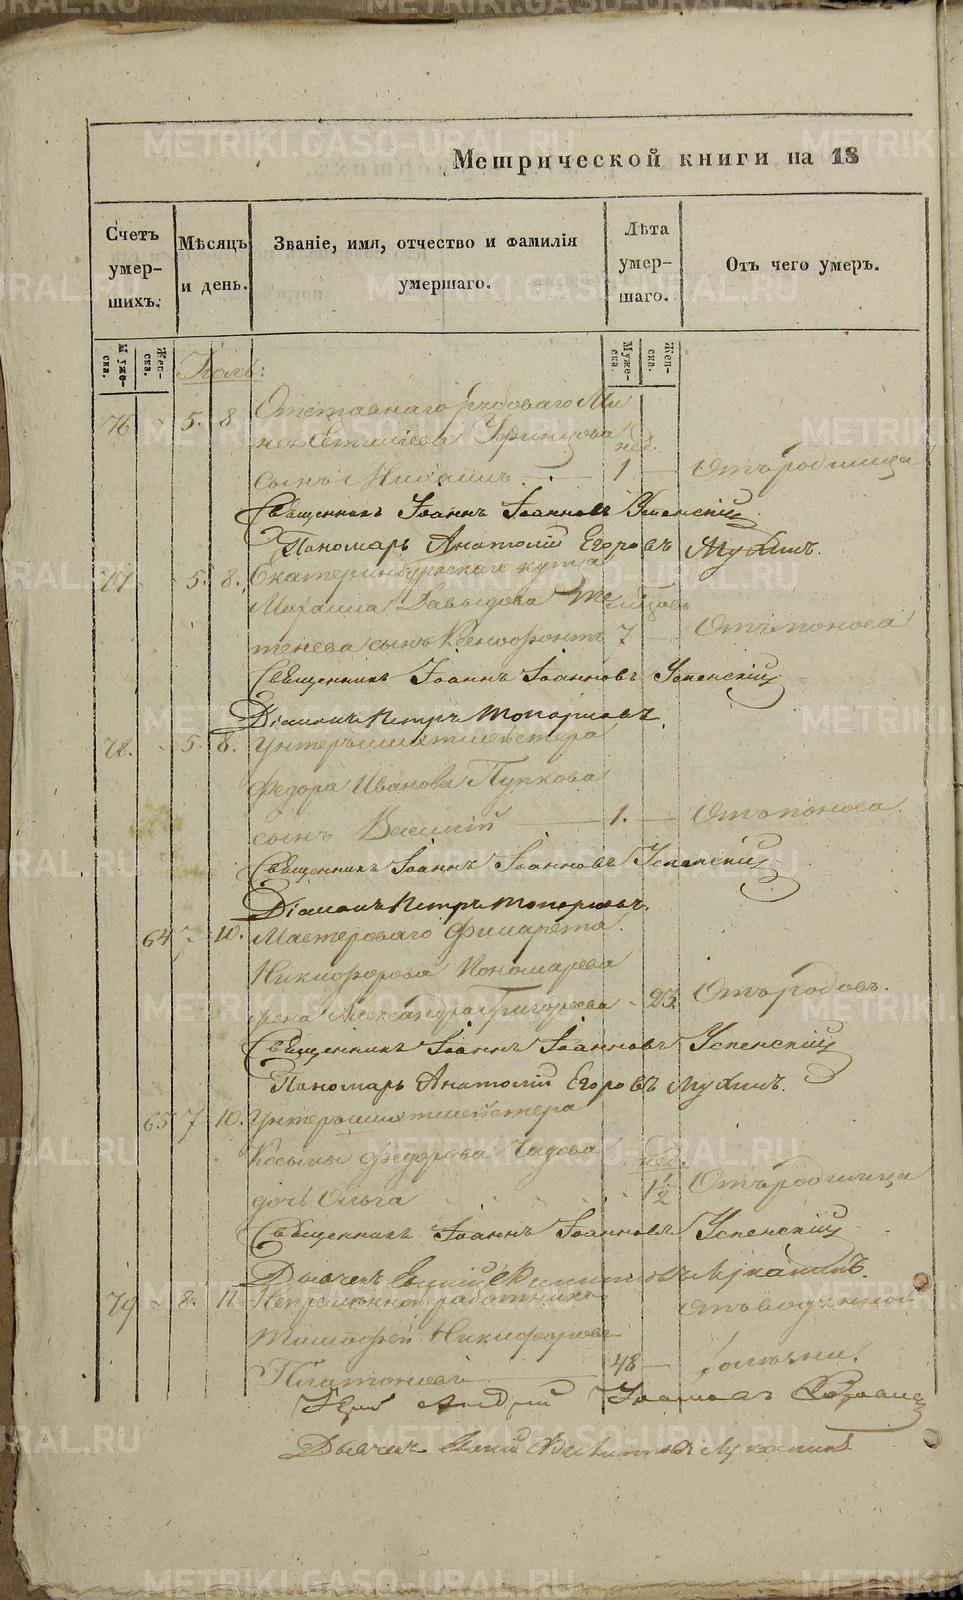 Метрической книги на 18
Счетъ умер- шихъ.
Мѣсяцъ и день.
Званіе, имя, отчество и фамилія умершаго.
Лѣта умер- шаго.
Отъ чего умеръ.
Муже- ска.
Жен- ска.
Муже- ска.
Жен- ска.
Іюль:
76 5. 8 Отставнаго рядоваго Ми
нед.
сынъ Михаилъ 1 Отъ родимца
Священникъ Іоаннъ Іоанновъ Успенскій
Пономарь Анатолій Егоровъ Мухинъ.
77 5. 8. Екатеринбургскаго купца
Михаила Давыдова
сынъ Ксенофонтъ 7 Отъ поноса
Священникъ Іоаннъ Іоанновъ Успенскій
Діаконъ Петръ Топорковъ.
78. 5. 8. Унтершихтмейстера
Федора Иванова Пупкова
сынъ Василій 1. Отъ поноса.
Священникъ Іоаннъ Іоанновъ Успенскій
Діаконъ Петръ Топорковъ.
64 7 10. Мастероваго Филарета
Никифорова Пономарева
жена Александра Григорьева 23. Отъ родовъ.
Священникъ Іоаннъ Іоанновъ Успенскій
Пономарь Анатолій Егоровъ Мухинъ.
65 7 10. Унтершихтмейстера
Косьмы Федорова
нед.
дочь Ольга 1 1/2 Отъ родимца
Священникъ Іоаннъ Іоанновъ Успенскій
Дьячекъ
79 8. 11 Непремѣнной работникъ отъ водяной
Тимофей Никифоровъ
Платоновъ 48 болѣзни.
Іерей Андрей
Дьячекъ
METRIKI.GASO-URAL.RU